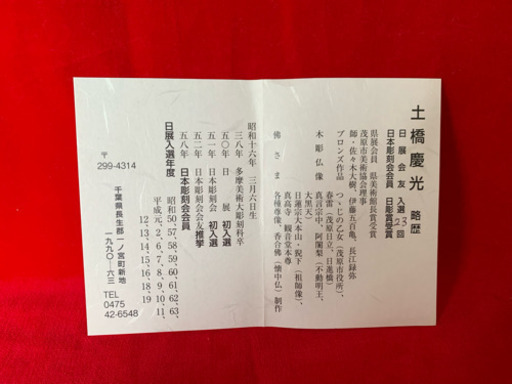 土橋慶光 略歴
日展会友 入選23回
日本彫刻会会員 日彫賞受賞
県展会員 県美術館長賞受賞
茂原市美術協会理事
師・佐々木大樹、伊藤五百亀、長江録弥
ブロンズ作品 つゝじの乙女(茂原市役所)、
春雷(茂原日立、日進橋)
木彫仏像 真言宗中、阿闍梨(不動明王、
大黒天)
日蓮宗大本山・猊下(祖師像)、
真高寺 観音堂本尊
佛さま 各種尊像・香合佛(懐中仏)制作
昭和十六年 三月六日生
三八年 多摩美術大彫刻科卒
五〇年 日展 初入選
五一年 日本彫刻会 初入選
五二年 日本彫刻会会友推挙
五八年 日本彫刻会会員
日展入選年度
昭和50、57、58、59、60、61、62、63、
平成元、2、6、7、8、9、10、11、
12、13、14、15、16、18、19
千葉県長生郡一ノ宮町新地
一九九〇-六三
〒
299-4314
TEL
0475
42-6548